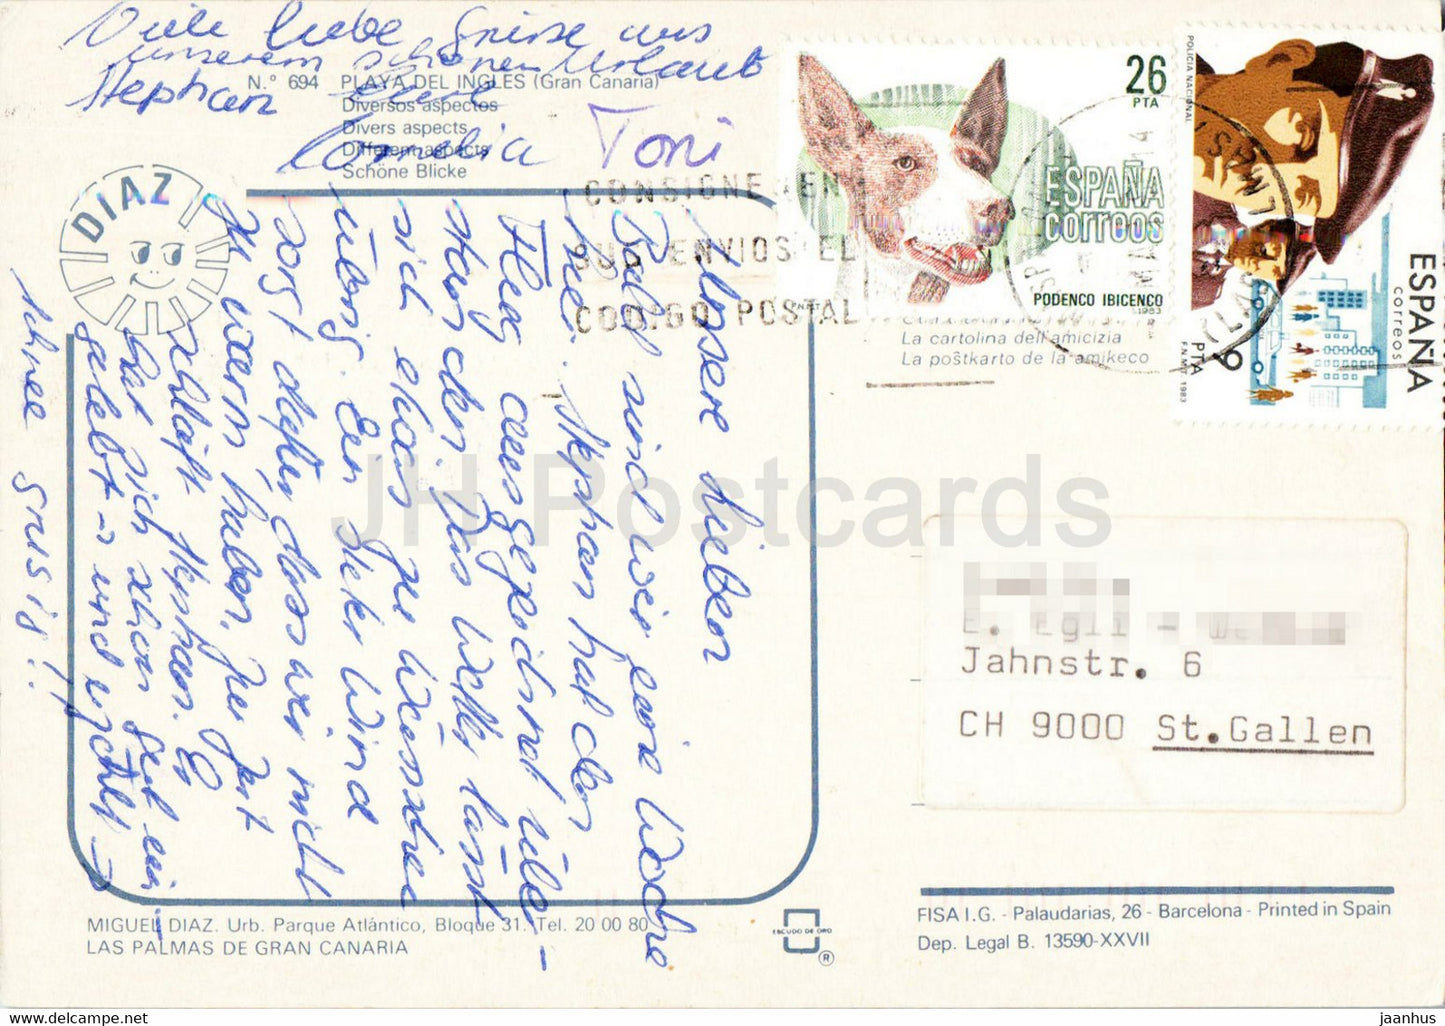 Viele liebe Grüsse aus
unserem schönen Urlaub
Stephan
Cornelia Toni
N.° 694 PLAYA DEL INGLES (Gran Canaria)
Diversos aspectos
Divers aspects
Different aspects
Schöne Blicke
DIAZ
Unsere Lieben
Bald sind wir eine Woche
hie. Stephan hat den
Flug ausgezeichnet über-
standen. Das Wetter lässt
sich etwas zu wünschen
übrig. Ein starker Wind
sorgt dafür, dass wir nicht
zu warm haben. Zur Zeit
schläft Stephan. Er
hat sich schon gut ein-
gelebt und
schnee Grüsse!
CONSIGNE EN
SUS ENVIOS EL
CODIGO POSTAL
26
PTA
ESPAÑA
correos
PODENCO IBICENCO
1983
POLICIA NACIONAL
ESPAÑA
correos
9
PTA
F.N.M.T. 1983
La cartolina dell'amicizia
La poŝtkarto de la amikeco
E. Egli -
Jahnstr. 6
CH 9000 St.Gallen
JH Postcards
MIGUEL DIAZ. Urb. Parque Atlántico, Bloque 31. Tel. 20 00 80
LAS PALMAS DE GRAN CANARIA
ESCUDO DE ORO
®
FISA I.G. - Palaudarias, 26 - Barcelona - Printed in Spain
Dep. Legal B. 13590-XXVII
jaanhus.myshopify.com